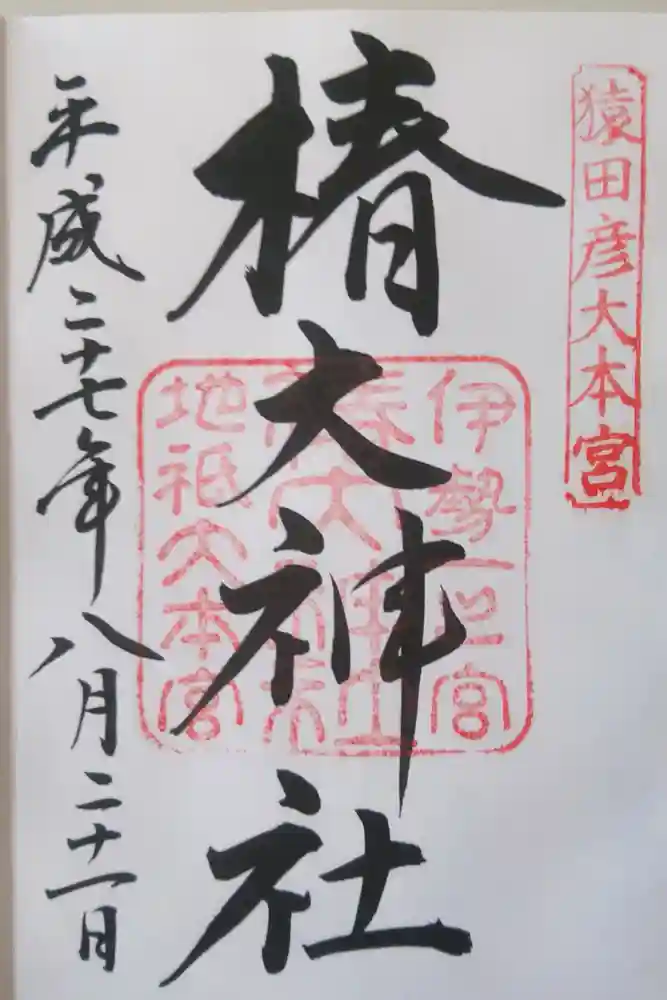 猿田彦大本宮
椿大神社
伊勢一之宮
椿大神社
地祇大本宮
平成二十七年八月二十一日